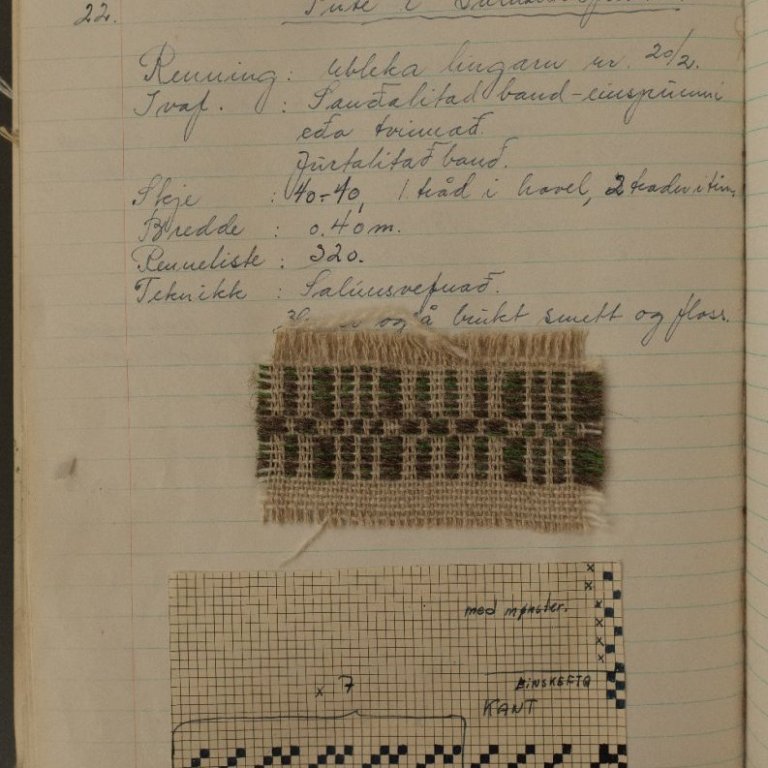 22. Pute i
Renning: ubleka lingarn nr. 20/2.
Ivaf. : Sauðalitað band - einspinni
eða tvinnað.
Jurtalitað band.
Skje : 40-40, 1 tråd i hovel, 2 tråder i tin.
Bredde : 0.40 m.
Renneliste : 320.
Teknikk : Salúnsvefnað.
også brukt smett og floss.
med mønster.
EINSKEFTA
KANT
x 7